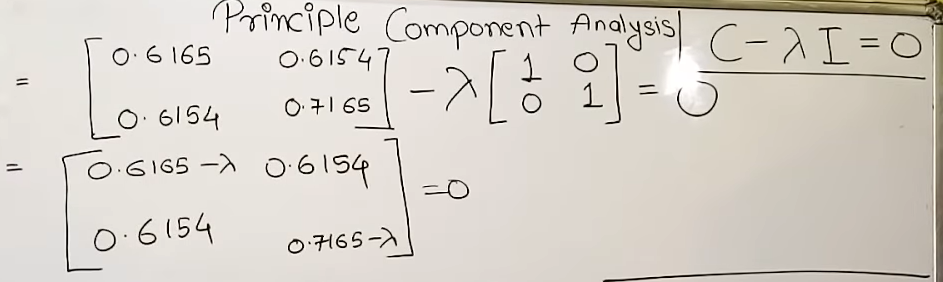 Principle Component Analysis| C - λI = 0
= [0.6165 0.6154
0.6154 0.7165] - λ [1 0
0 1] = 0
= [0.6165 - λ 0.6154
0.6154 0.7165 - λ] = 0